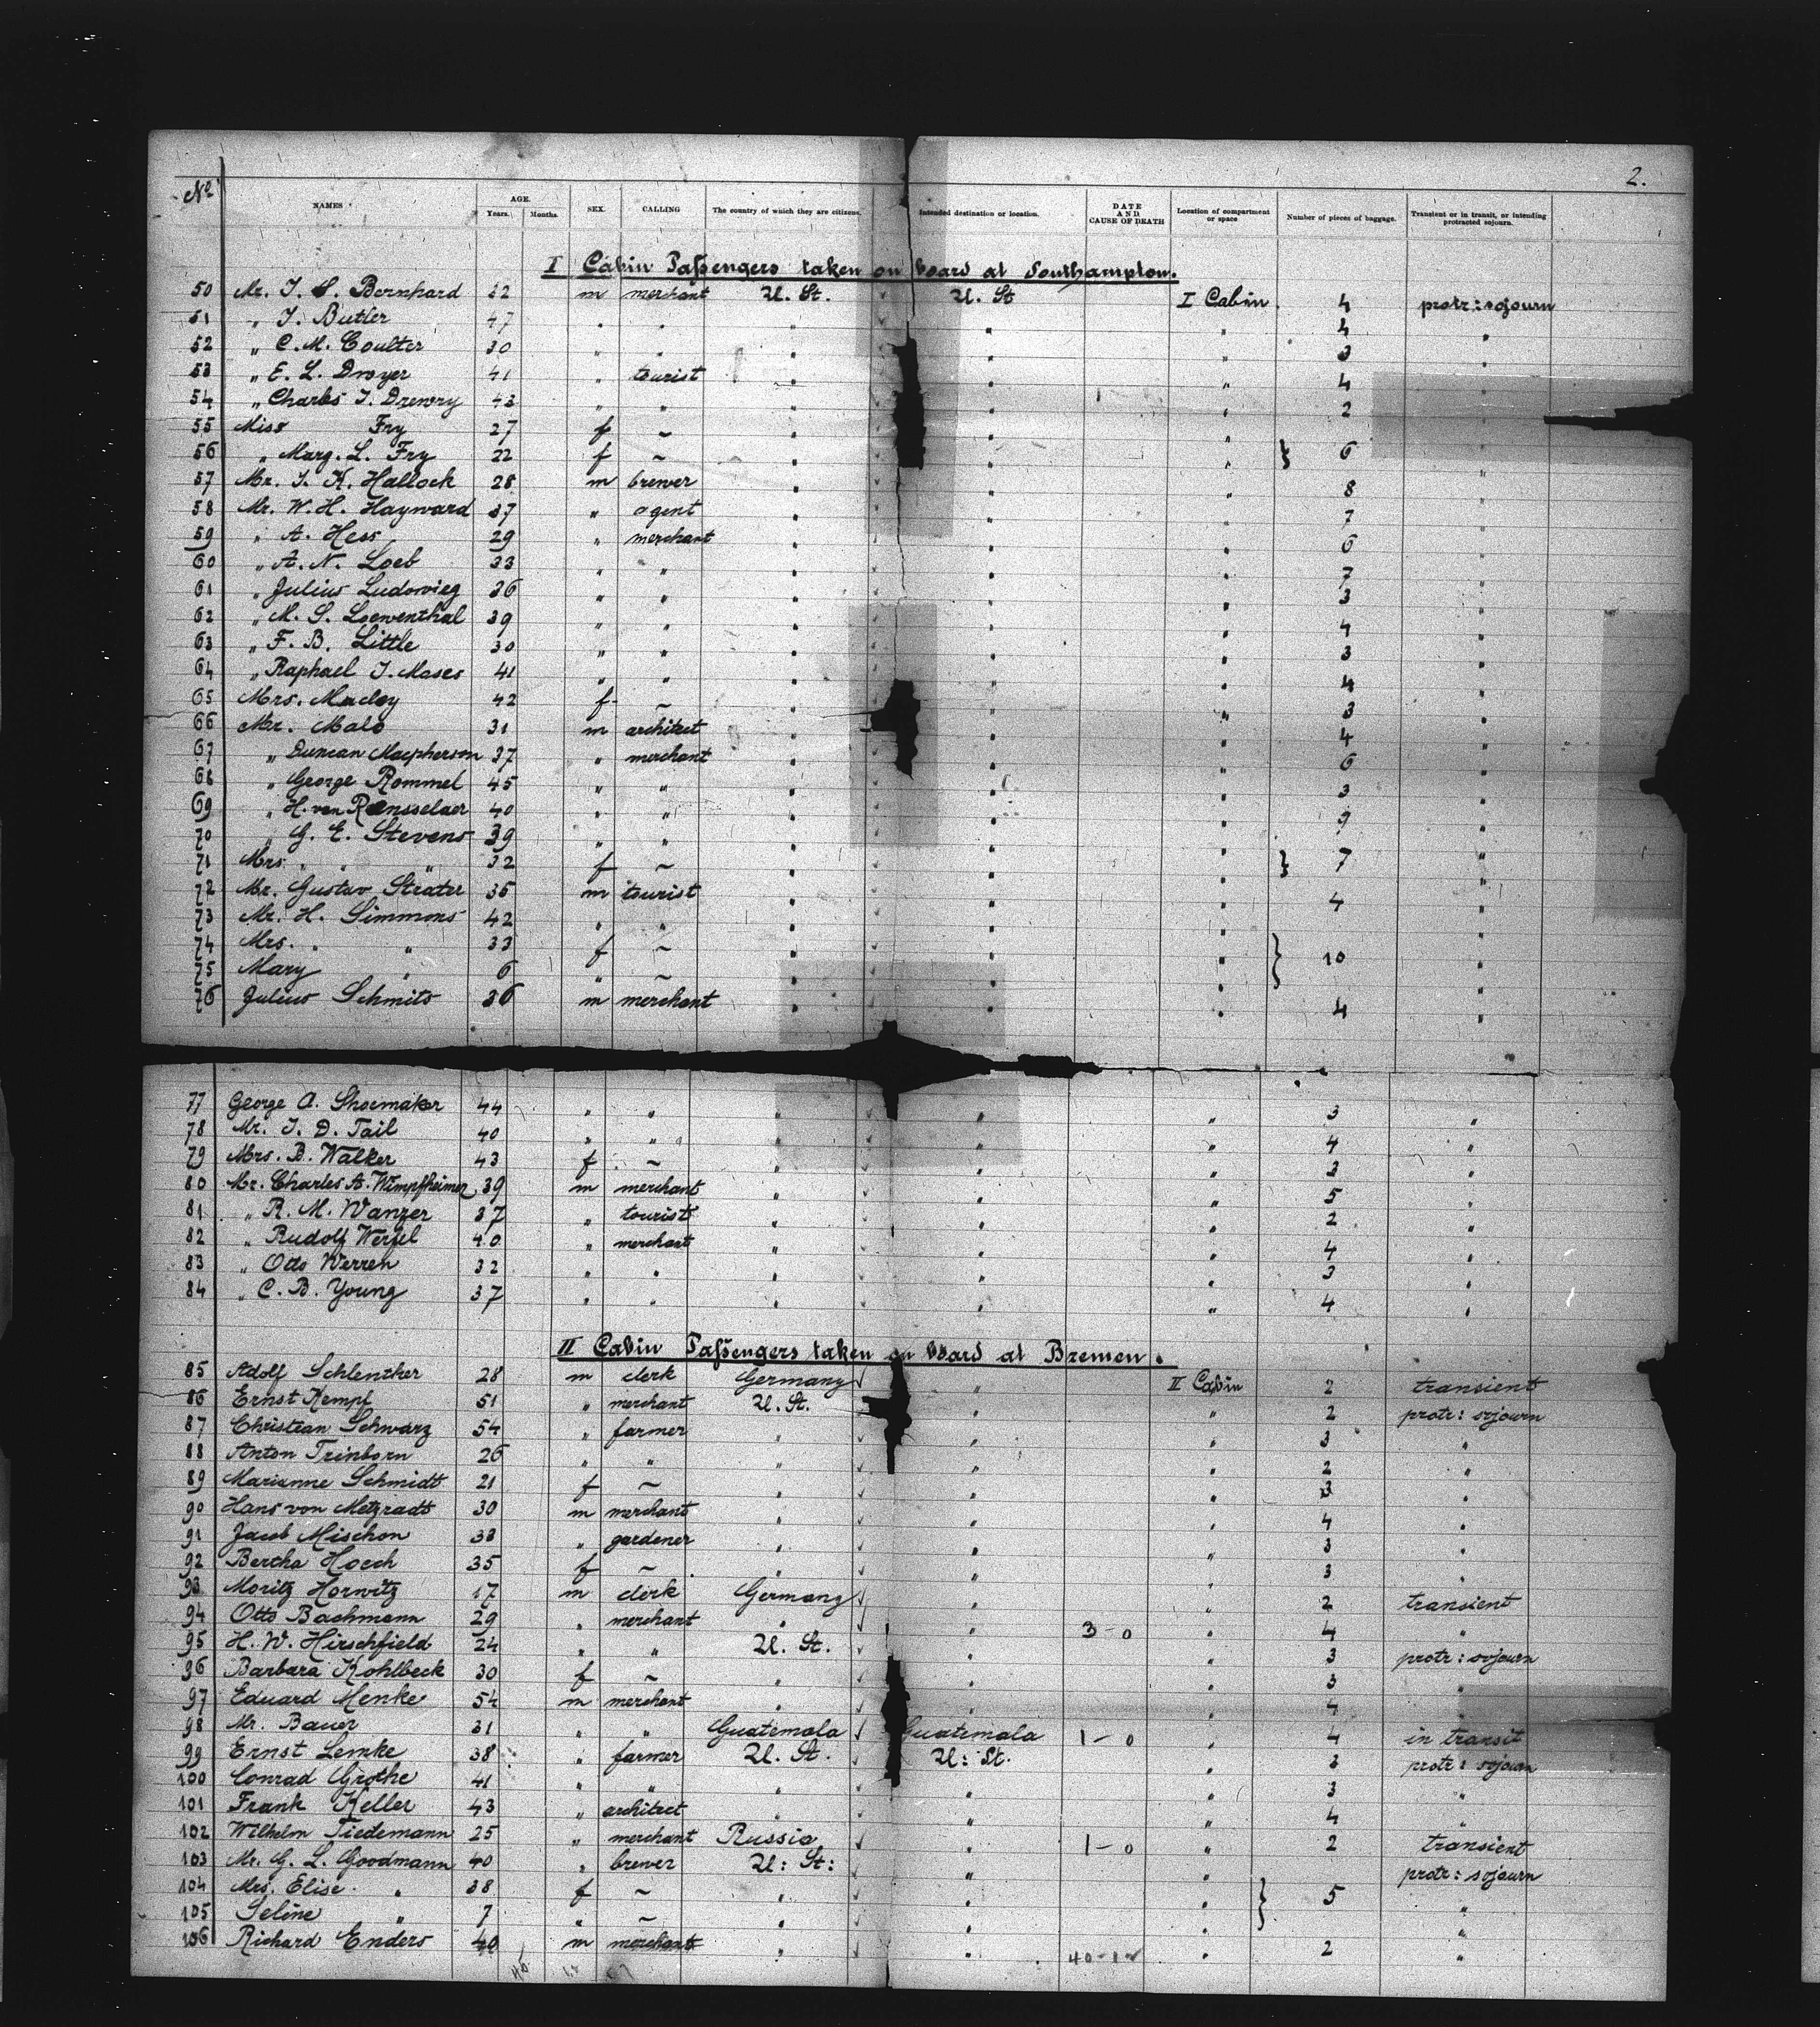 2.
No NAMES AGE. Years. Months. SEX. CALLING The country of which they are citizens. Intended destination or location. DATE AND CAUSE OF DEATH Location of compartment or space Number of pieces of baggage. Transient or in transit, or intending protracted sojourn.
I Cabin Passengers taken on board at Southampton.
50 Mr. I. S. Bernhard 32 m merchant U. St. U. St I Cabin 4 protr: sojourn
51 " I. Butler 47 " " " " " 4 "
52 " C. M. Coulter 30 " " " " " 3 "
53 " E. L. Dwyer 41 " tourist " " " 4 "
54 " Charles I. Drewry 43 " " " " " 2 "
55 Miss Fry 27 f ~ " " " } 6 "
56 " Marg. L. Fry 22 f ~ " " " "
57 Mr. I. K. Hallock 28 m brewer " " " 8 "
58 Mr. W. H. Hayward 37 " agent " " " 7 "
59 " A. Hess 29 " merchant " " " 6 "
60 " A. N. Loeb 33 " " " " " 7 "
61 " Julius Ludowieg 36 " " " " " 3 "
62 " M. S. Loewenthal 39 " " " " " 4 "
63 " F. B. Little 30 " " " " " 3 "
64 " Raphael I. Moses 41 " " " " " 4 "
65 Mrs. Macley 42 f ~ " " " 3 "
66 Mr. Malo 31 m architect " " " 4 "
67 " Duncan Macpherson 37 " merchant " " " 6 "
68 " George Rommel 45 " " " " " 3 "
69 " H. van Rensselaer 40 " " " " " 9 "
70 " G. E. Stevens 39 " " " " " } 7 "
71 Mrs. " " 32 f ~ " " " "
72 Mr. Gustav Strater 35 m tourist " " " 4 "
73 Mr. H. Simmons 42 " " " " " } 10 "
74 Mrs. " " 33 f ~ " " " "
75 Mary " 6 " ~ " " " "
76 Julius Schmits 36 m merchant " " " 4 "
77 George A. Shoemaker 44 " " " " " 3 "
78 Mr. I. D. Tail 40 " " " " " 4 "
79 Mrs. B. Walker 43 f ~ " " " 3 "
80 Mr. Charles A. Wimpfheimer 39 m merchant " " " 5 "
81 " R. M. Wanzer 37 " tourist " " " 2 "
82 " Rudolf Werfel 40 " merchant " " " 4 "
83 " Otto Werren 32 " " " " " 3 "
84 " C. B. Young 37 " " " " " 4 "
II Cabin Passengers taken on board at Bremen.
85 Adolf Schlenther 28 m clerk Germany " II Cabin 2 transient
86 Ernst Kempf 51 " merchant U. St. " " 2 protr: sojourn
87 Christean Schwarz 54 " farmer " " " 3 "
88 Anton Trinborn 26 " " " " " 2 "
89 Marianne Schmidt 21 f ~ " " " 3 "
90 Hans von Metzradt 30 m merchant " " " 4 "
91 Jacob Mischon 33 " gardener " " " 3 "
92 Bertha Hoech 35 f ~ " " " 3 "
93 Moritz Horwitz 17 m clerk Germany " " 2 transient
94 Otto Bachmann 29 " merchant " " 3-0 " 4 "
95 H. W. Hirschfield 24 " " U. St. " " 3 protr: sojourn
96 Barbara Kohlbeck 30 f ~ " " " 3 "
97 Eduard Menke 54 m merchant " " " 4 "
98 Mr. Bauer 31 " " Guatemala Guatemala 1-0 " 4 in transit
99 Ernst Lemke 38 " farmer U. St. U: St. " 3 protr: sojourn
100 Conrad Grothe 41 " " " " " 3 "
101 Frank Keller 43 " architect " " " 4 "
102 Wilhelm Tiedemann 25 " merchant Russia " 1-0 " 2 transient
103 Mr. G. L. Goodmann 40 " brewer U: St: " " } 5 protr: sojourn
104 Mrs. Elise " 38 f ~ " " " "
105 Seline " 7 " ~ " " " "
106 Richard Enders 40 m merchant " " " 2 "